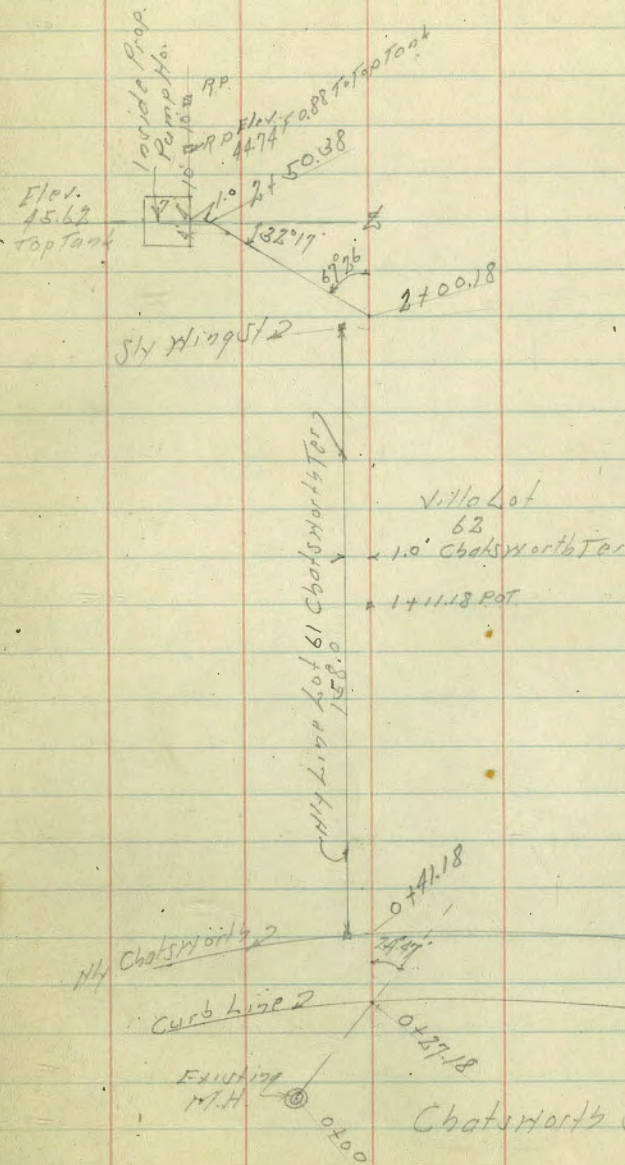 Inside Prop.
Pump Ho.
10.0
R.P.
R.P. Elev.
44.74
50.88 To Top Tank
Elev.
45.62
Top Tank
1.0
2+50.38
132°17'
67°26
2+00.18
Sly Wing St
Villa Lot
62
1.0' Chatsworth Ter
1+11.18 P.O.T.
Wly Line Lot 19 Chatsworth Ter
158.0
0+41.18
Nly Chatsworth
24°47'
Curb Line
0+27.18
Existing
M.H.
0+00
Chatsworth